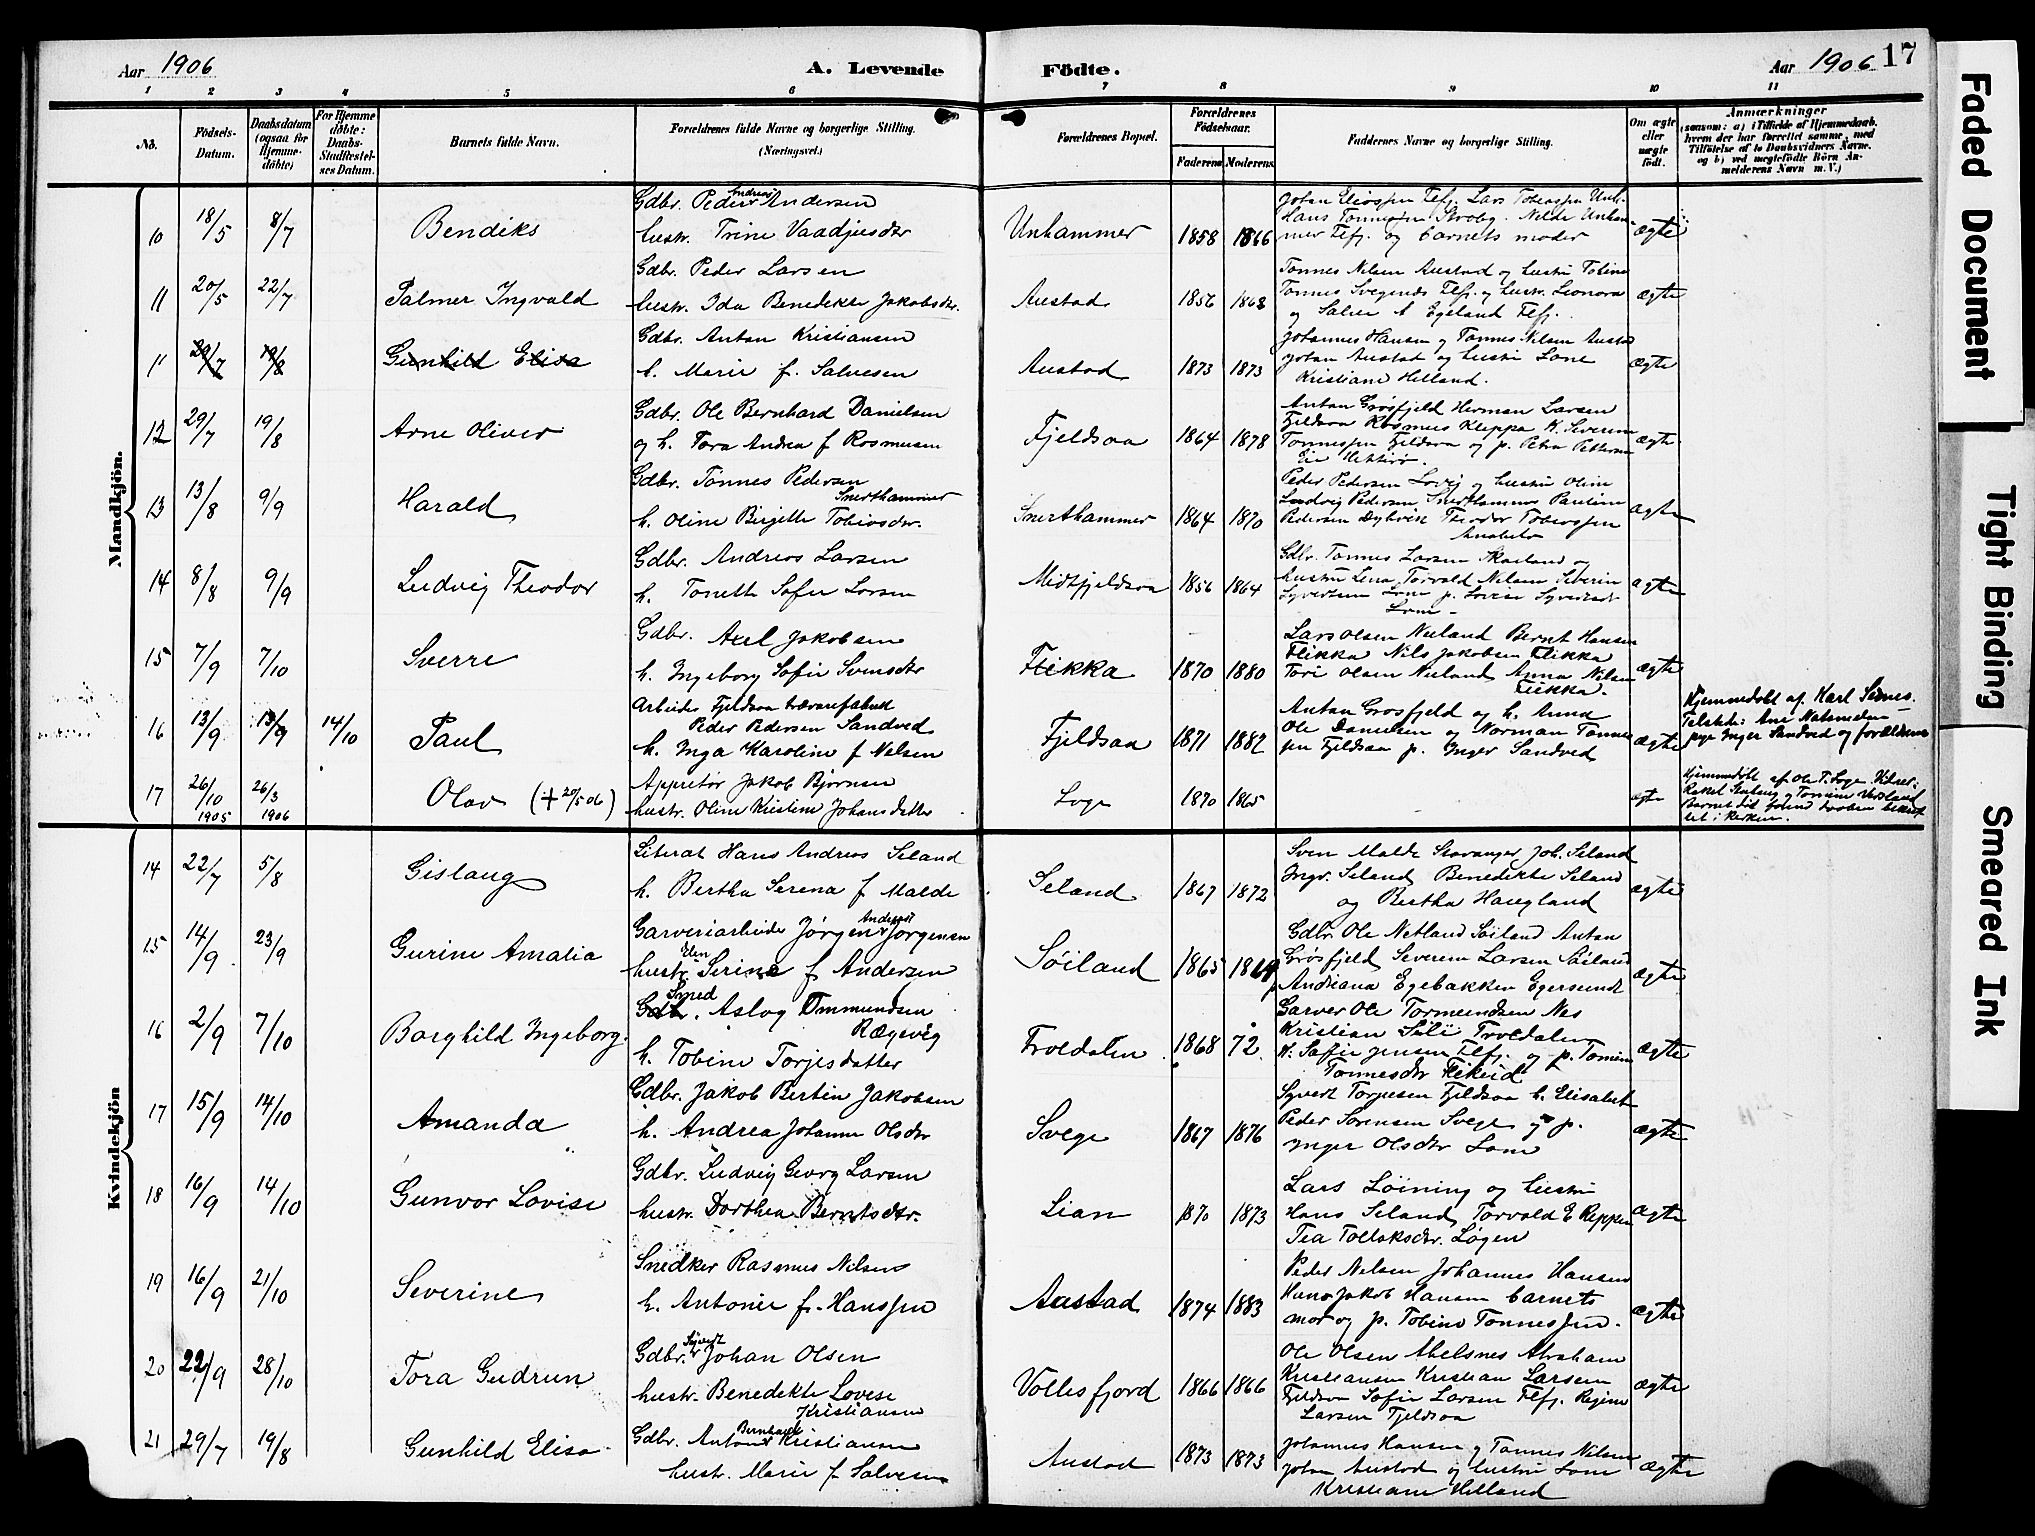 Aar 1906
A. Levende
Födte.
Aar 1906
17
1 2 3 4 5 6 7 8 9 10 11
No.
Födsels-
Datum.
Daabsdatum
(ogsaa for
Hjemme-
döbte)
For Hjemme
döbte:
Daabs-
Stadfæstel-
ses Datum.
Barnets fulde Navn.
Forældrenes fulde Navne og borgerlige Stilling.
(Næringsvei.)
Forældrenes Bopæl.
Forældrenes
Födselsaar.
Faderens Moderens
Faddernes Navne og borgerlige Stilling.
Om ægte
eller
uægte
født.
Anmærkninger
(saasom: a) i Tilfælde af Hjemmedaab,
hvem der har forrettet samme, med
Tilföielse af to Daabsvidners Navne.
og b) ved uægtefödte Börn An-
melderens Navn m. V.)
Mandkjön.
10 18/5 8/7 Bendiks
Gdbr. Peder Andreas Andersen
hustr. Trine Vaadjusdtr
Unhammer 1858 1866
Johan Eliassen Flfj. Lars Tobiassen
Hans Tønnessen
og barnets moder
ægte
11 20/5 22/7 Palmer Ingvald
Gdbr. Peder Larsen
hustr. Ida Benedikte Jakobsdtr.
Austad 1856 1863
Tønnes Nilsen Austad og hustru Tobine
Tønnes Svegends Flfj. og hustr. Leonora
Egeland Flfj.
ægte
11 29/7 19/8 Gunhild Elisa
Gdbr. Anton Kristiansen
h. Marie f. Salvesen
Austad 1873 1873
Johannes Hansen og Tønnes Nilsen Austad
Johan Austad og hustru Lone
Kristiane Helland.
ægte
12 29/7 19/8 Arne Oliver
Gdbr. Ole Bernhard Danielsen
og h. Tora Andrea f Rasmusen
Fjeldsaa 1864 1878
Anton Grøsfjeld Herman Larsen
Fjeldsaa Rasmus Kleppa K. Severin
Tønnessen Fjeldsaa og p. Petra Pettersen
ægte
13 13/8 9/9 Harald
Gdbr. Tønnes Pedersen
Snerthammer
h. Oline Birgitte Tobiasdtr.
Snerthammer 1864 1870
Peder Pedersen Lovig og hustru Oline
Ludvig Pedersen Snerthammer Pauline
Pedersen Dybvik Theodor Tobiassen
ægte
14 8/8 9/9 Ludvig Theodor
Gdbr. Andreas Larsen
h. Tonette Sofie Larsen
Midtfjeldsaa 1856 1864
Gdbr. Tønnes Larsen Skailand og
hustru Lena, Torvald Nilsen Severin
Syvertsen Lone p. Lovise
Lone
ægte
15 7/9 7/10 Sverre
Gdbr. Axel Jakobsen
h. Ingeborg Sofie Svensdtr
Flikka 1870 1880
Lars Olsen Nuland Bernt Hansen
Flikka Nils Jakobsen Flikka
Tori Olsen Nuland, Anna Nilsen
Flikka.
ægte
16 13/9 13/9 14/10 Paul
Arbeider Fjeldsaa trævarefabrik
Peder Pedersen Sandved
h. Inga Karoline f Nilsen
Fjeldsaa 1871 1882
Anton Grøsfjeld og h. Anna
Ole Danielsen og Norman Tønnes
sen Fjeldsaa p. Inger Sandved
ægte
Hjemmedøbt af Karl
Tilstede:
Inger Sandved og forældrene
17 26/10 1905 26/3 1906 Olav (+ 20/5 06)
Appretør Jakob Bjørnsen
hustr. Oline Kristine Johansdatter
Loge 1870 1865
ægte
Hjemmedøbt af Ole T. Loge
Barnet did forend daaben
i kirken.
Kvindekjön
14 22/7 5/8 Gislaug
Literat Hans Andreas Seland
h. Bertha Serena f Malde
Seland 1867 1872
Sven Malde Stavanger, Joh. Seland
Ingv. Seland, Benedikte Seland
og Bertha Haugland
ægte
15 14/9 23/9 Gurine Amalia
Garveriarbeider Jørgen Andreas Jørgensen
hustr. Elen Serine f Andersen
Søiland 1865 1869
Gdbr. Ole Netland Søiland Anton
Grøsfjeld, Severin Larsen Søiland
p Andreana Egebakken Egersund
ægte
16 2/9 7/10 Borghild Ingeborg
Gdb. Smed Aslag Ommundsen
Rægevig
h. Tobine Torjesdatter
Troldalen 1868 72.
Garver Ole Tormundsen Nes
Kristian Troldalen
K. Sofie Jensen Flfj. og p. Tomine
Tønnesdtr Fikvid
ægte
17 15/9 14/10 Amanda
Gdbr. Jakob Bertin Jakobsen
h. Andrea Johanne Olsdtr
Svege 1867 1876
Syvert Torgesen Fjeldsaa h. Elisabet
Peder Sørensen Svege og p.
Inger Olsdtr Lone
ægte
18 16/9 14/10 Gunvor Lovise
Gdbr. Ludvig Georg Larsen
hustr. Dorthea Berntsdtr.
Lian 1870 1873
Lars Løining og hustru
Hans Seland, Torvald E Reppen
Tea Tollaksdtr. Løgen
ægte
19 16/9 21/10 Severine
Snedker Rasmus Nilsen
h. Antonie f. Hanssen
Austad 1874 1883
Peder Nilsen Johannes Hansen
Hans Jakob Hansen barnets
mor og p. Tobine Tønnessen.
ægte
20 22/9 28/10 Tora Gudrun
Gdbr. Syvert Johan Olsen
hustr. Benedikte Lovise
Kristiansen
Vollesfjord 1866 1866
Ole Olsen Abelsnes Abraham
Kristiansen Kristian Larsen
Fjeldsaa Sofie Larsen Flfj. Regine
Larsen Fjeldsaa
ægte
21 29/7 19/8 Gunhild Elisa
Gdbr. Anton Bernhard Kristiansen
hustr. Marie f Salvesen
Austad 1873 1873
Johannes Hansen og Tønnes Nilsen
Johan Austad og hustru Lone
Kristiane Helland
ægte
Faded Document
Tight Binding
Smeared Ink